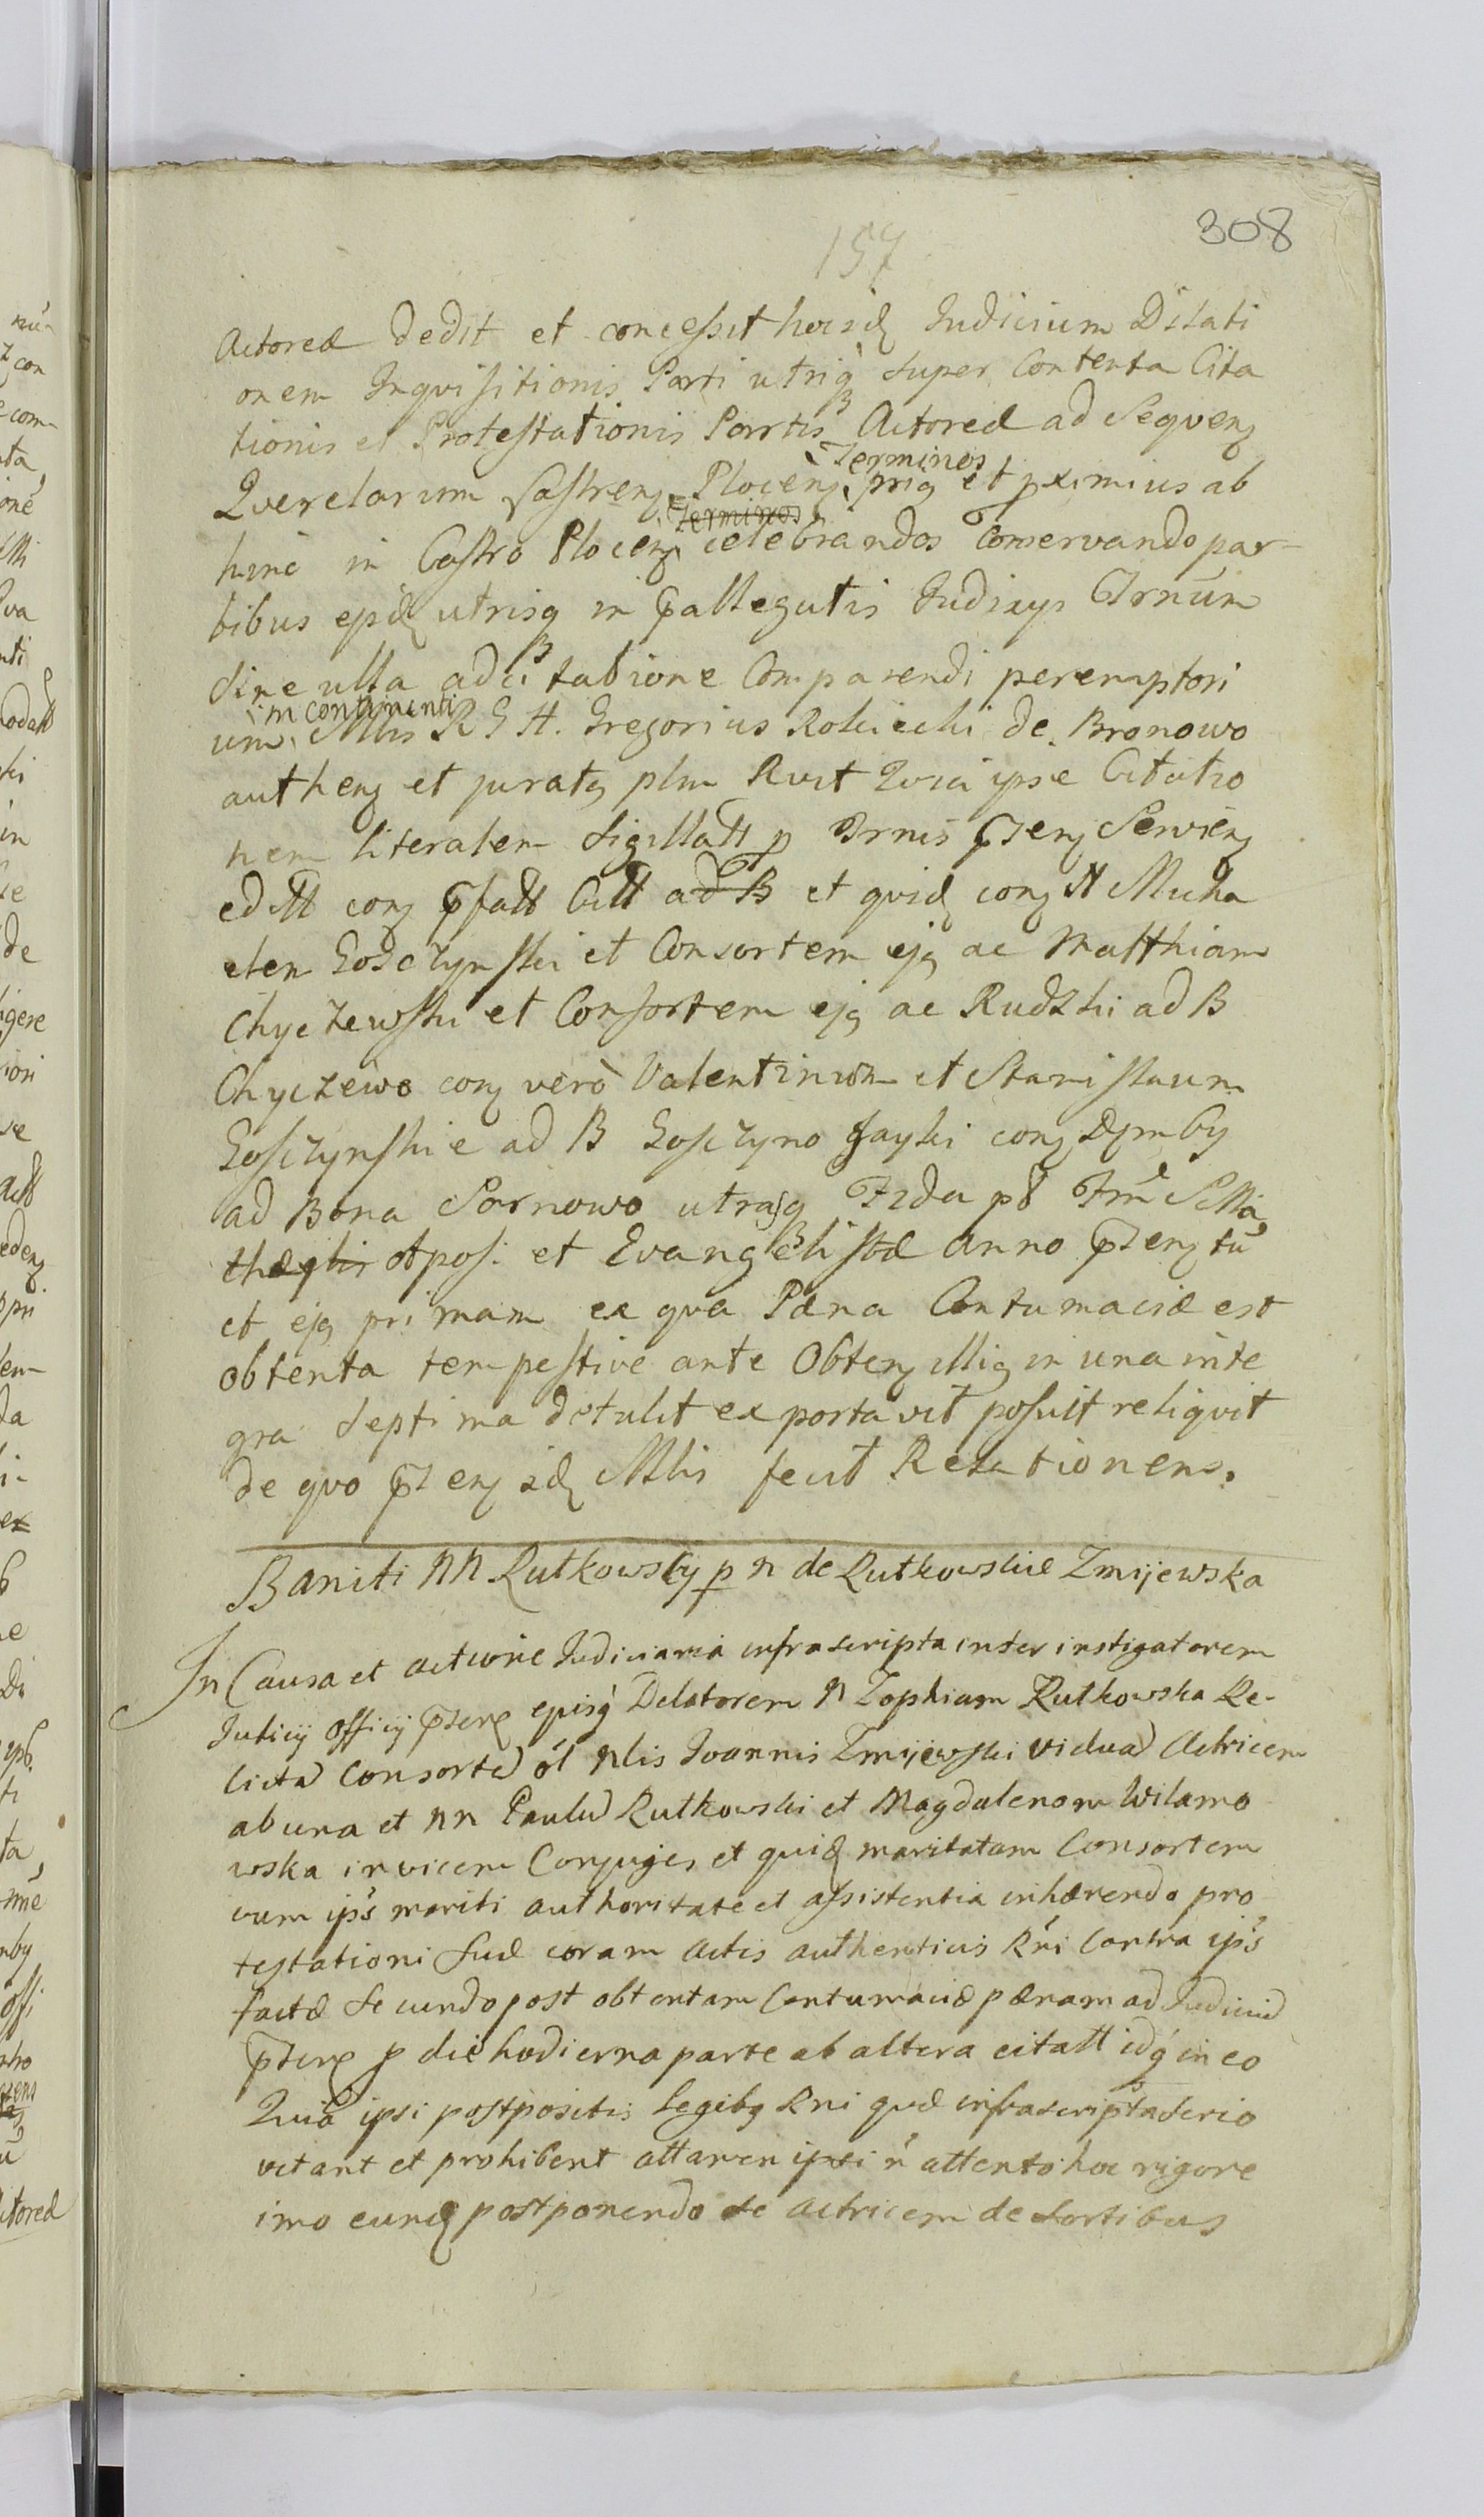 308
157
Actoreæ dedit et concessit hocidq Judicium Dilati
onem Inqvisitionis Parti utriq super Contenta Cita
tionis et Protestationis Partis Actoreæ ad Seqvenȝ
Terminos
Qverelarum Castrenȝ Plocenȝ priȝ et pximius ab
Terminos
hinc in Castro Plocenȝ celebrandos Conservando par-
tibus ejsdq utrisq in pallegatis Judicys Trnũm
sine ulla adcitatione Comparendi peremptori
in continenti
um Mlis R G H. Gregorius Rokicki de Bronowo
authenȝ et juratȝ plm Rvit Qvia ipse Citatio
nem literalem Sigillatt p Trnis pzenȝ Servienȝ
editt conȝ pfatt Citt ad B et qvidq conȝ N Micha
elem Gosczynski et Consortem ejȝ ac Matthiam
Chyczewski et Consortem ejȝ ac Rudzki ad B
Chyczewo conȝ verò Valentinum et Stanislaum
Gosczynskie ad B Gosczyno Fayki conȝ Dęmby
ad Bona Sarnowo utrasq Frda pt Frm S Ma
thæi Apos: et Evangelistæ anno pzenȝ tũ
et ejȝ primam ex qva Pæna Contumaciæ est
obtenta tempestive ante Obtenȝ illiȝ in una inte
gra septimana detulit exportavit posuit reliqvit
de qvo pzenȝ idq Mlis fecit Relationem.
Baniti NN Rutkowscy p N de Rutkowskie Zmijewska
In Causa et actione Judiciaria infrascripta inter instigatorem
Judicij officij pzenȝ ejusq Delatorem N Zophiam Rutkowska Re-
lictã Consortẽ ol Nlis Joannis Zmijewski viduã Actricem
ab una et NN Paulũ Rutkowski et Magdalenam Wilamo
wska invicem Conjuges et qvidq maritatam Consortem
cum ips mariti authoritate et assistentia inhærendo pro
testationi suæ coram actis authenticis Rni Contra ips
factæ secundo post obtentam Contumaciæ pænam ad Judiciũ
pzenȝ p die hodierna parte ab altera citatt idq in eo
Qvia ipsi postpositis Legibȝ Rni qvæ infrascripta serio
vetant et prohibent attamen ipsi ñ attento hoc rigore
imo eumdq postponendo se actricem de sortibus